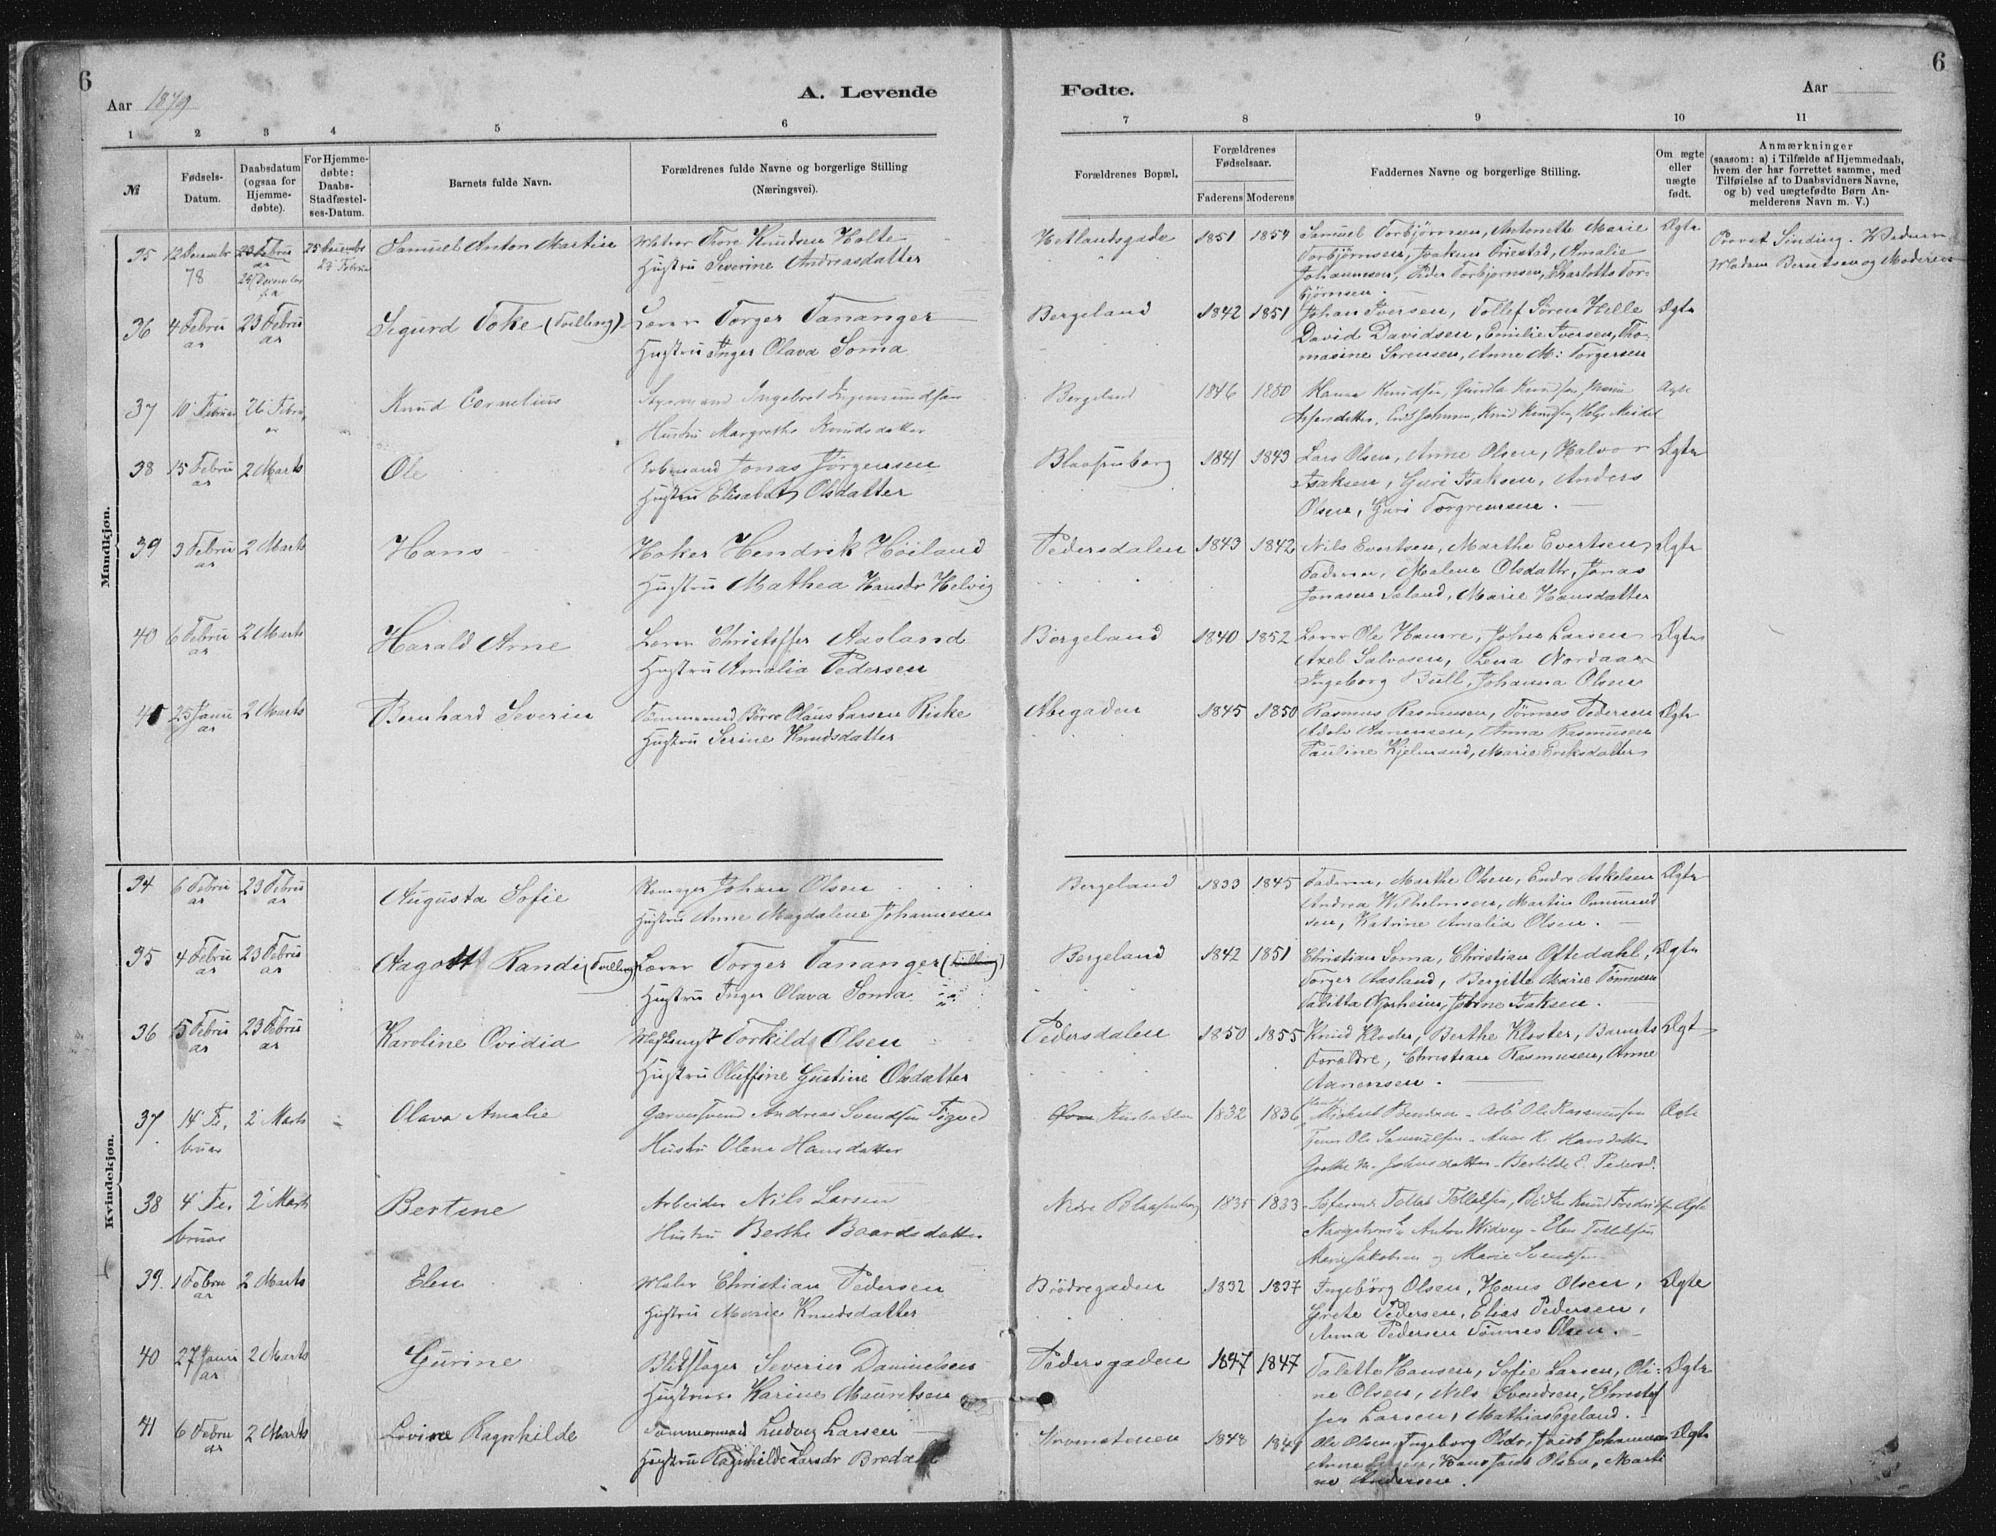 6
Aar 1879
A. Levende
Fødte.
Aar
6
1 2 3 4 5 6 7 8 9 10 11
№
Fødsels-
Datum.
Daabsdatum
(ogsaa for
Hjemme-
døbte).
For Hjemme-
døbte:
Daabs-
Stadfæstel-
ses-Datum.
Barnets fulde Navn.
Forældrenes fulde Navne og borgerlige Stilling
(Næringsvei).
Forældrenes Bopæl.
Forældrenes
Fødselsaar.
Faderens Moderens
Faddernes Navne og borgerlige Stilling.
Om ægte
eller
uægte
født.
Anmærkninger
(saasom: a) i Tilfælde af Hjemmedaab,
hvem der har forrettet samme, med
Tilføielse af to Daabsvidners Navne,
og b) ved uægtefødte Børn An-
melderens Navn m. V.)
Mandkjøn.
35 12 December 78 23 Februar 25 December 25 December 23 Februar Samuel Anton Martin
Thore Knudsen Holte
Hustru Severine Andreasdatter
Hetlandsgade 1851 1854
Samuel Torbjørnsen, Antonette Marie
Torbjørnsen, Joakum Friestad, Amalie
Johannesen, Peder Torbjørnsen, Charlotte Tor-
bjørnsen.
Ægte
Provst Sinding.
Madam Berntsen og Moderen
36 4 Februar 23 Februar Sigurd Toke (Tvilling)
Lærer Torger Tananger
Hustru Inger Olava Soma
Bergeland 1842 1851
Johan Iversen, Tollef Søren Helle
David Davidsen, Emilie Iversen, Tho-
masine Sørensen, Anne M: Torgersen
Ægte
37 10 Februar 26 Februar Knud Cornelius
Styrmand Ingebret Ingemundsen
Hustru Margrethe Knudsdatter
Bergeland 1846 1850
Hanna Knudsen, Gunda Knudsen
Knud Knudsen, Helge Meidel
Ægte
38 15 Februar 2 Marts Ole
Arbmand Jonas Jørgensen
Hustru Elisabet Olsdatter
Blaasenborg 1841 1843
Lars Olsen, Anne Olsen, Halvor
Isaksen, Guri Isaksen, Anders
Olsen, Guri Torgrimsen.
Ægte
39 3 Februar 2 Marts Hans
Høker Hendrik Høiland
Hustru Mathea Hansdr Helvig
Pedersdalen 1843 1842
Nils Evertsen, Marthe Evertsen,
Faderen, Malene Olsdattr, Jonas
Jonasen Sæland, Marie Hansdatter
Ægte
40 6 Februar 2 Marts Harald Arne
Lærer Christoffer Aasland
Hustru Amalia Pedersen
Bergeland 1840 1852
Lærer Ole Hamre, John Larsen
Axel Salvesen, Lena Nordaas
Ingeborg Bull, Johanna Olsen
Ægte
41 25 Januar 2 Marts Bernhard Severin
Tømmermd Børre Olaus Larsen Riske
Hustru Serine Knudsdatter
Abegaden 1845 1850
Rasmus Rasmusen, Tønnes Pedersen
Adolv Aanensen, Anna Rasmusen
Pauline Kjelmrand, Marie Eriksdatter
Ægte
Kvindekjøn.
34 6 Februar 23 Februar Augusta Sofie
Johan Olsen
Hustru Anne Magdalene Johannesen
Bergeland 1833 1845
Faderen, Marthe Olsen, Endre Askelsen
Andrea Wilhelmsen, Martin Ommund
sen, Katrine Amalia Olsen.
Ægte
35 4 Februar 23 Februar Aagott Randi (Tvilling)
Lærer Torger Tananger (Tvilling)
Hustru Inger Olava Soma
Bergeland 1842 1851
Christian Soma, Christian Oftedahl,
Torger Aasland, Bergitte Marie Tønnesen
Talitta Njerheim, Jobine Isaksen.
Ægte
36 5 Februar 23 Februar Karoline Ovidia
Torkild Olsen
Hustru Oluffine Gustine Olsdatter
Pedersdalen 1850 1855
Knud Kloster, Berthe Kloster, Barnets
Forældre, Christian Rasmusen, Anne
Aanensen.
Ægte
37 14 Februar 2 Marts Olava Amalie
Garversvend Andreas Svendsen Tigved
Hustru Olene Hansdatter
1832 1836
Michael Berntsen - Arb Ole Rasmussen
Ole Samuelsen - Anne K. Hansdatter
Grethe M. Johnsdatter - Bertilde E. Pedersd.
Ægte
38 4 Februar 2 Marts Bertine
Arbeider Nils Larsen
Hustru Berthe Baardsdatter
Nedre Blaasenborg 1835 1833
Søfarende Tollef Tollefsen, Knud Fredriksen
Anton Widvey - Elen Tollefsen
Marie Jakobsen og Marie Svendsen
Ægte
39. 1 Februar 2 Marts Elen
Maler Christian Pedersen
Hustru Marie Knudsdatter
Brødregaden 1832 1837
Ingebørg Olsen, Hans Olsen,
Grete Pedersen, Elias Pedersen,
Anna Pedersen Tønnes Olsen.
Ægte
40 27 Januar 2 Marts Gurine
Blikslager Severin Danielsen
Hustru Karine Mauritsen
Pedersgaden 1847 1847
Talette Hansen, Sofie Larsen, Oli-
ne Olsen, Nils Svendsen, Christof
fer Larsen, Mathias Egeland.
Ægte
41 6 Februar 2 Marts Lovine Ragnhilde
Tømmermand Ludvig Larsen
Hustru Ragnhilde Larsdr Bredahl
1848 1849
Ole Olsen, Ingeborg Olsdr, Jacob Johannesen
Anne Larsen, Hans Jacob Olsen, Marti
ne Andersen.
Ægte